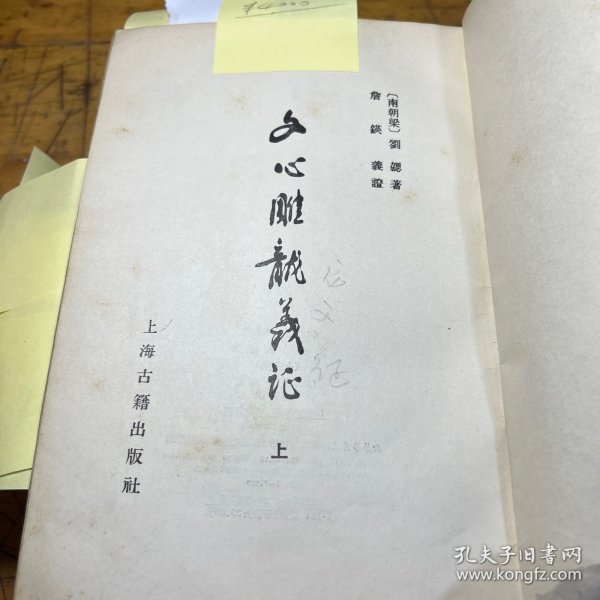 〔南朝梁〕劉勰著
詹鍈義證
文心雕龍義证
上
上海古籍出版社
孔夫子旧书网
www.kongfz.com